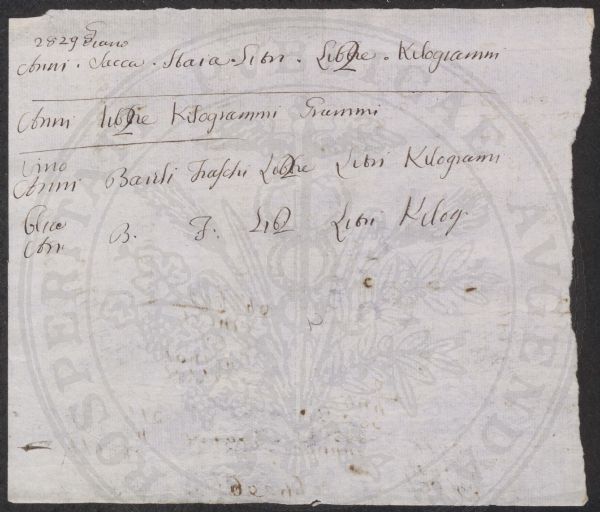 2829 Grano
Anni . Sacca . Staia . Litri . Libbre . Kilogrammi
Anni Libbre Kilogrammi Grammi
Vino
Anni Barili Fiaschi Libbre Litri Kilogrammi
Olio
Anni B. F. Lib Litri Kilog.
PROSPERITATI PUBLICAE AUGENDAE